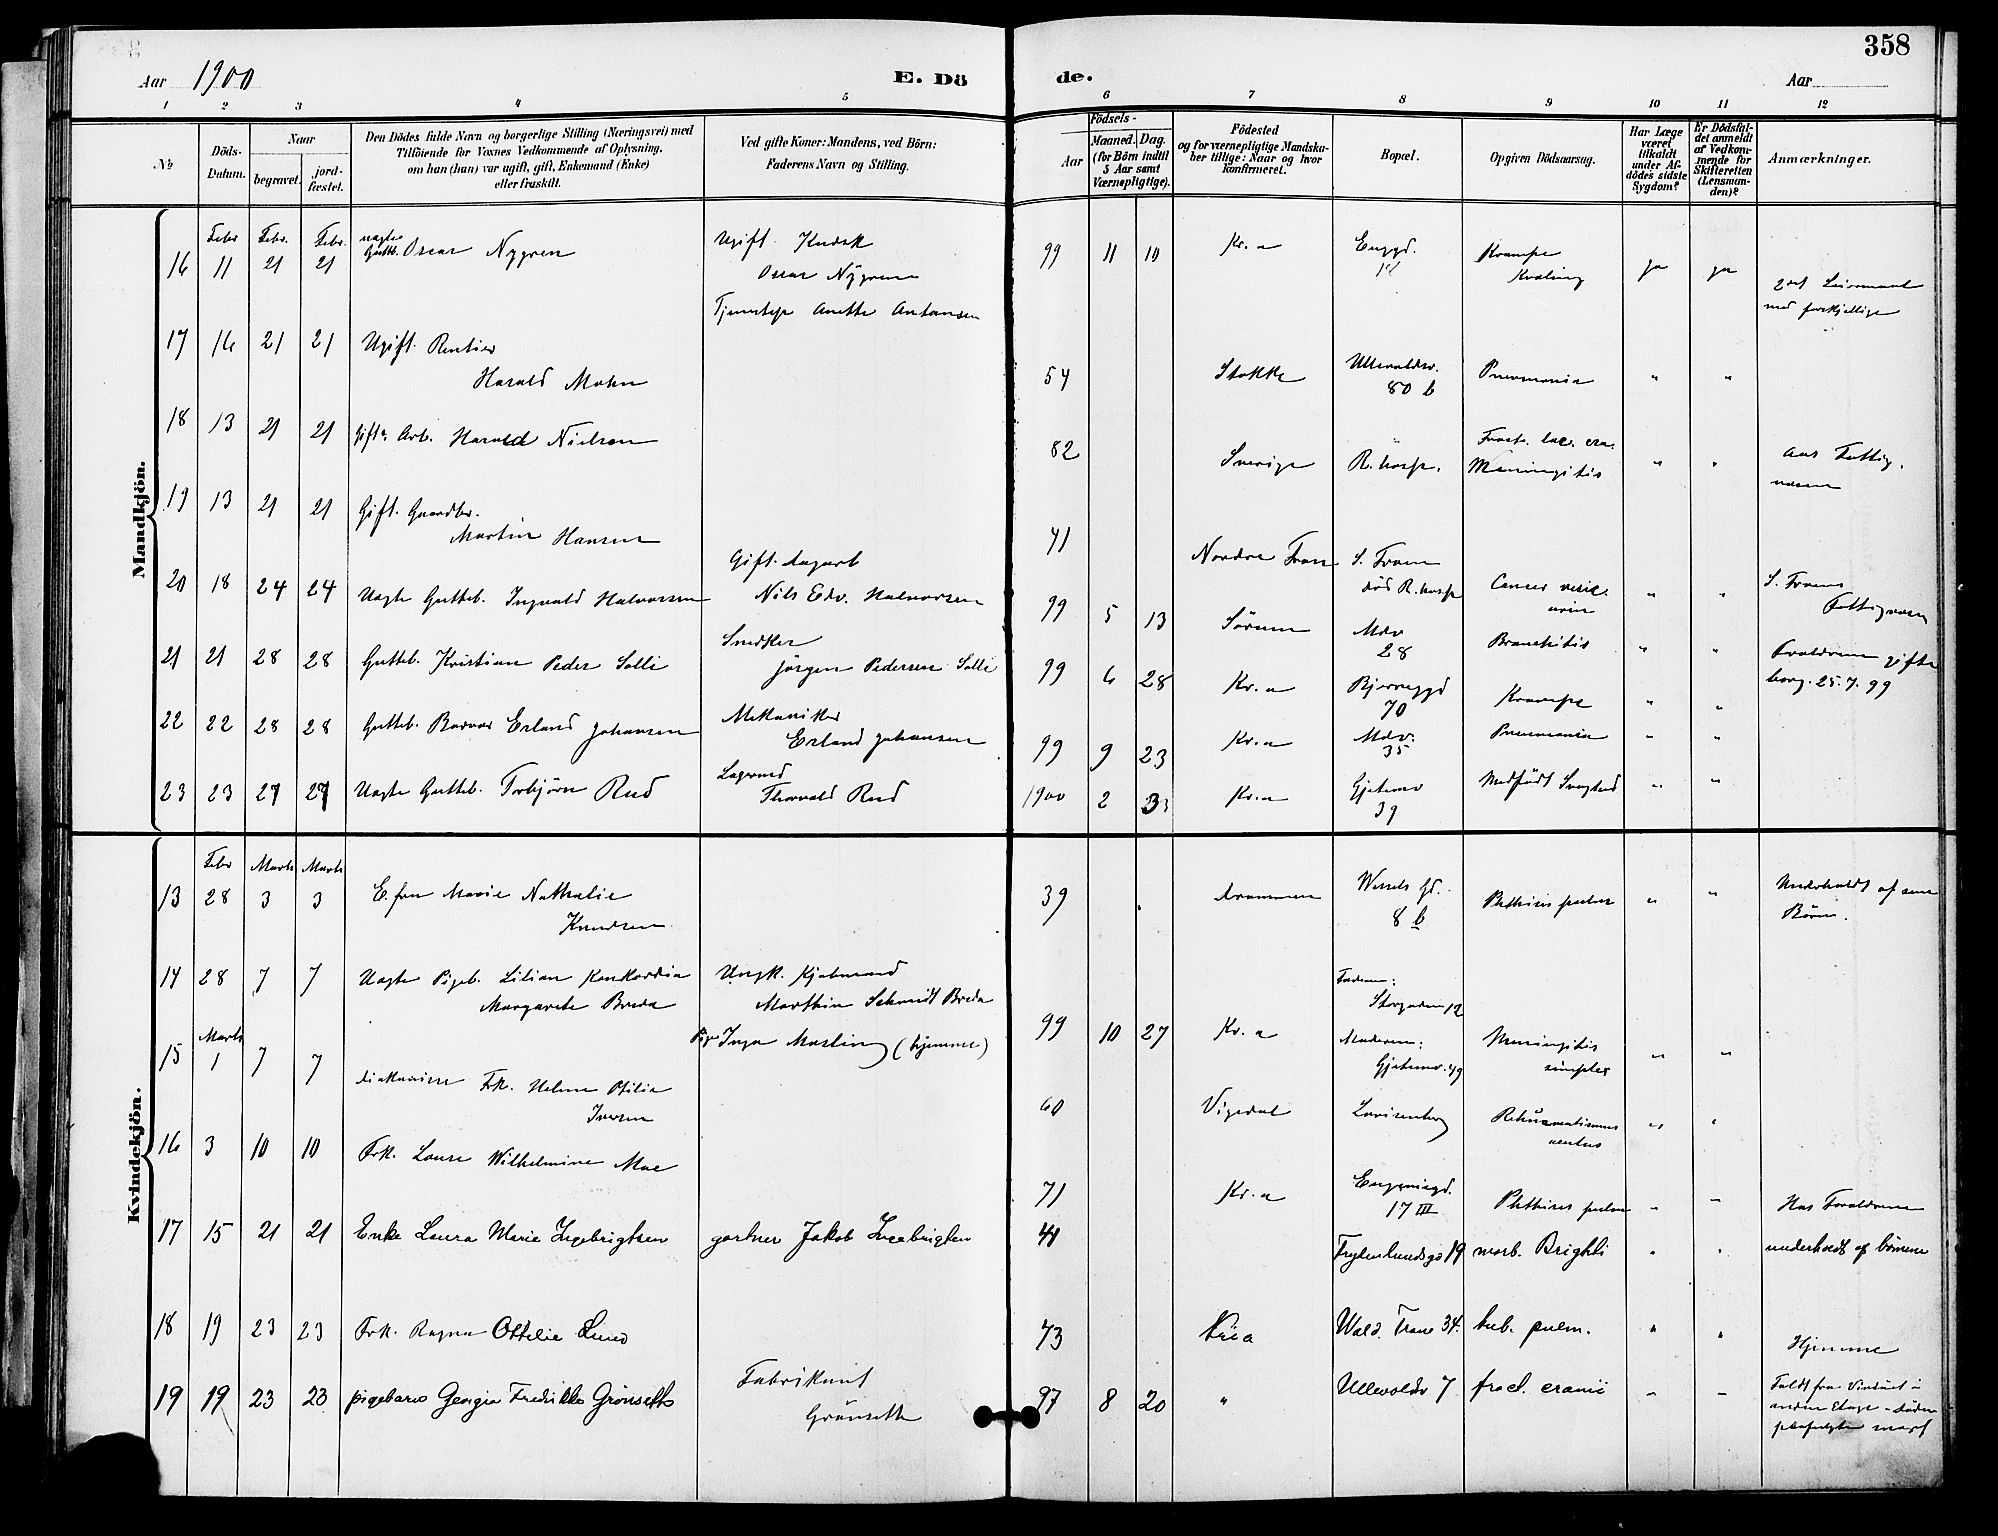 358
Aar 1900
E. Dö
de.
Aar
1 2 3 4 5 6 7 8 9 10 11 12
№
Döds-Datum.
Naar
begravet.
jord-fæstet.
Den Dödes fulde Navn og borgerlige Stilling (Næringsvei) med
Tilföiende for Voxnes Vedkommende af Oplysning,
om han (hun) var ugift, gift, Enkemand (Enke)
eller fraskilt.
Ved gifte Koner: Mandens, ved Börn:
Faderens Navn og Stilling.
Födsels-
Aar
Maaned. Dag.
(for Börn indtil
5 Aar samt
Værnepligtige).
Födested
og for værnepligtige Mandska-
ber tillige: Naar og hvor
konfirmeret.
Bopæl.
Opgiven Dödsaarsag.
Har Læge
været
tilkaldt
under Af-
dödes sidste
Sygdom?
Er Dödsfal-
det anmeldt
af Vedkom-
mende for
Skifteretten
(Lensman-
den)?
Anmærkninger.
Mandkjön.
Febr Febr. Febr.
16 11 21 21 uægte Gutteb. Oscar Nygren
Ugift. Kudsk
Oscar Nygren
Tjenestep Anette Antonsen
99 11 10 Kr.a Enggd. Krampe
Kvælning ja ja
med forskjellige
17 16 21 21 Ugift. Rentier
Harald Mohn
54 Stokke Ullevaldsv.
80 b Pneumonia " "
18 13 21 21 Gift. Arb. Harald Nielsen
82 Sverige R. hosp. Fract. bac. cra.
Meningitis " " Aas Fattig-
væsen
19 13 21 21 Gift. Gaardbr.
Martin Hansen
41 Nordre Fron S. Fron
död R. hosp Cancer vesic.
urin " " S. Frons
Fattigvæsen
20 18 24 24 Uægte Gutteb. Ingvald Halvorsen
Gift.
Nils Edv. Halvorsen
99 5 13 Sörum Mdv
28 Bronchitis " " Forældrene gifte
borg. 25.7.99
21 21 28 28 Gutteb. Kristian Peder Solli
Snedker
Jörgen Pedersen Solli
99 6 28 Kr.a Bjerreggd
70 Krampe " "
22 22 28 28 Gutteb. Barvar Erland Johansen
Mekaniker
Erland Johansen
99 9 23 Kr.a Mdv.
35 Pneumonia " "
23 23 27 27 Uægte Gutteb. Torbjörn Rud
Lagermd
Thorvald Rud
1900 2 Kr.a Gjetemv
39 Medfödt Svaghed " "
Kvindekjön.
Febr Marts Marts
13 28 3 3 E. fru Marie Nathalie
Knudsen
39 Drammen Wessels Gd.
8 b Phthisis pulm " " Underholdt af sine
Börn.
14 28 7 7 Uægte Pigeb. Lilian Konkordia
Margarete Breda
Ungk. Kjöbmand
Marthin Schmidt Breda
Pige Inga Martin (hjemme)
99 10 27 Kr.a Faderen:
Storgaden 12
Moderen:
Gjetemv. 49 Meningitis
simplex " "
Marts
15 1 7 7 Diakonisse Frk. Helene Otilie
Iversen
60 Vigedal Lovisenberg Rheumatismus " "
16 3 10 10 Frk. Louise Wilhelmine Moe
71 Kr.a
17 III Phthisis pulm " " Hos Forældrene
17 15 21 21 Enke Laura Marie Ingebrigtsen
gartner Jakob Ingebrigtsen
41 Frydenlundsgd 19 morb. Brightii " " underholdt af börnene
18 19 23 23 Frk. Ragna Ottilie Lund
73 Kria Wald. Trane 34. tub. pulm. " " Hjemme
19 19 23 23 pigebarn Georgia Fredrikke Grönseth
Fabrikant
Grönseth
97 8 20 " Ullevoldsv 7 fract. cranii " " Faldt fra Vinduet i
anden Etage - döden